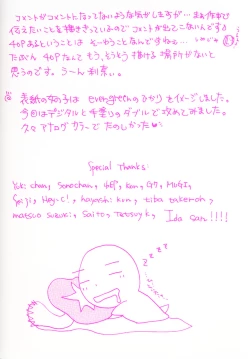 コメントがコメントになってないような気がしますが…まあ作中で
伝えたいことを描ききっているのでコメントが出てこないんですよ
46Pあるということは そーゆうことなんですねぇ…
たぶん 46Pなんて そうそう描ける場所がないと
思うのです。うーん
表紙の女の子は evergreenのひかりをイメージしました。
今回はデジタルと手塗りのダブルで攻めてみました。
久々アナログカラーでたのしかった
Special Thanks
Yuki chan, Sonochan, Ken, MUGI,
Seiji, Hey-C!, hayashi kun, tiba takeron,
matsuo suzuki, Saito, Tatsuya, Ida san!!!!
zzzzz